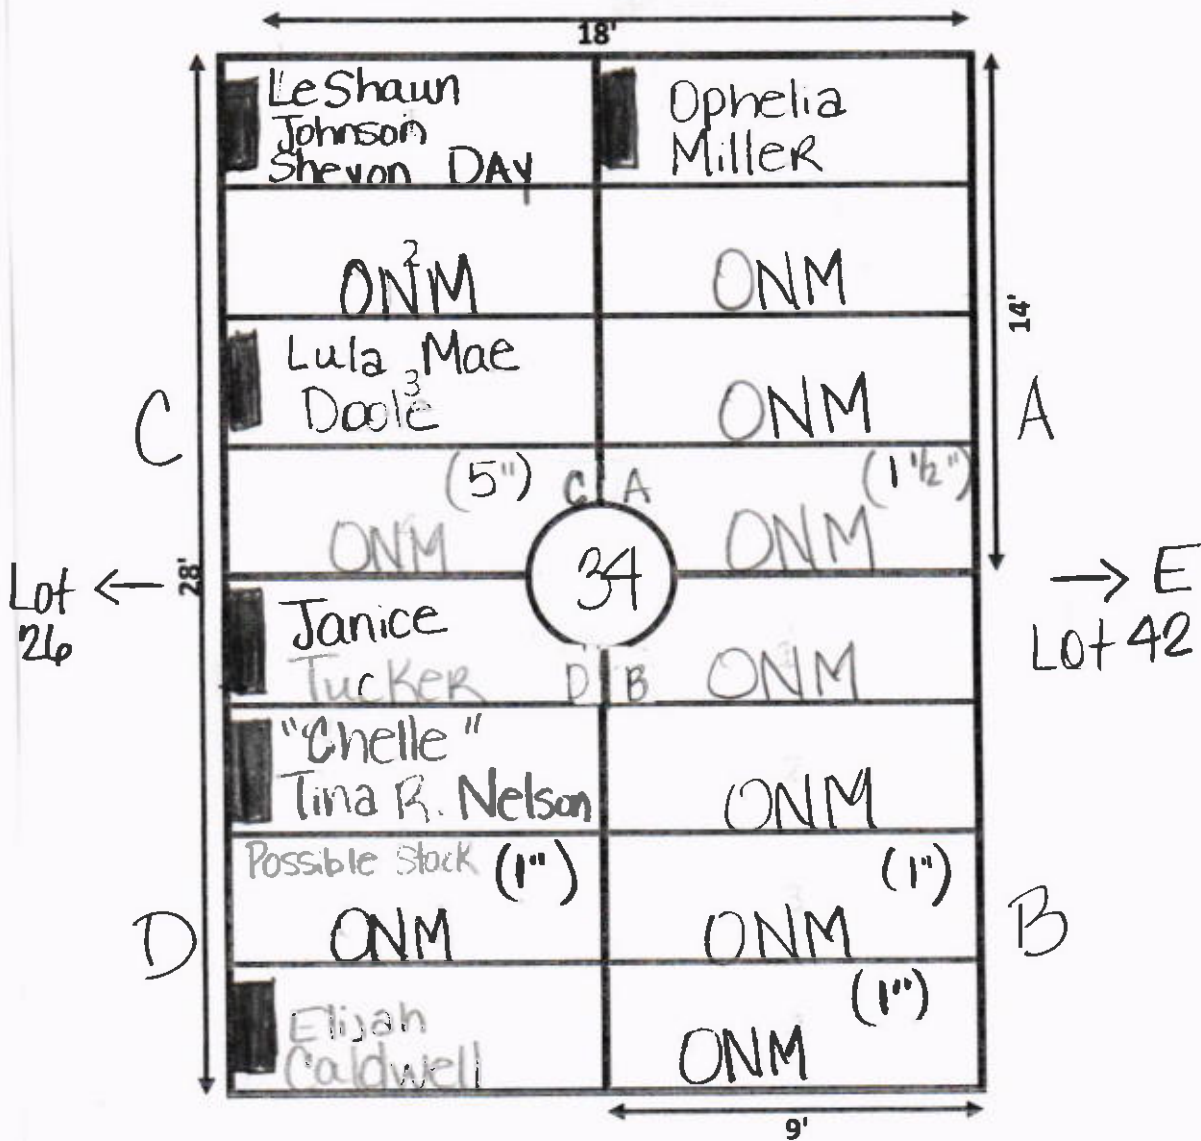 18'
LeShaun
Johnson
Shevon DAY
Ophelia
Miller
ONM
2
ONM
14'
Lula Mae
Doole
3
ONM
C
A
(5")
C A
(1 1/2")
ONM
ONM
28'
34
Lot
26
E
Lot 42
Janice
Tucker
D B
ONM
"Chelle"
Tina R. Nelson
ONM
Possible Stack (1")
ONM
(1")
ONM
D
B
Elijah
Caldwell
(1")
ONM
9'